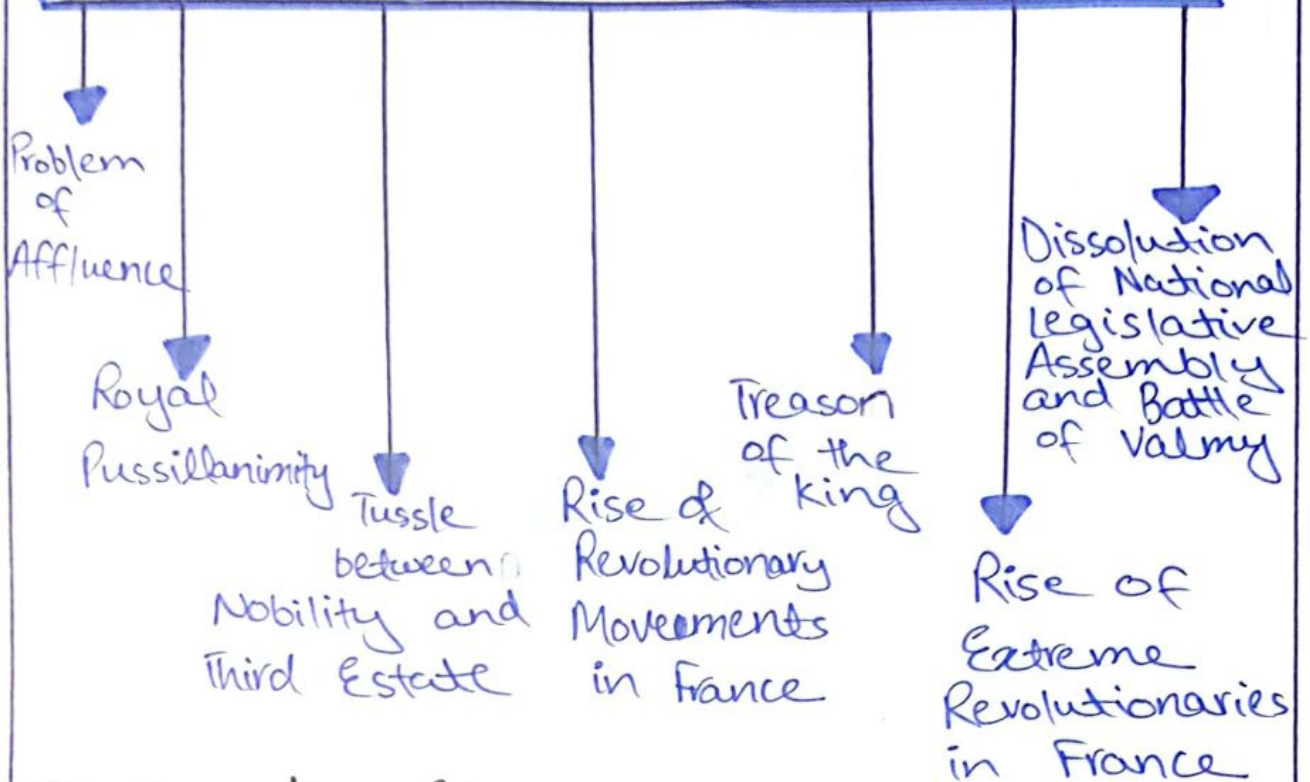 Problem
of
Affluence
Royal
Pussillanimity
Tussle
between
Nobility and
Third Estate
Rise of
Revolutionary
Movements
in France
Treason
of the
King
Rise of
Extreme
Revolutionaries
in France
Dissolution
of National
Legislative
Assembly
and Battle
of Valmy